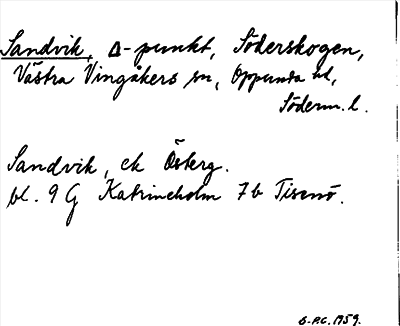 Sandvik, Δ-punkt, Söderskogen,
Västra Vingåkers sn, Oppunda hd,
Söderm. l.
Sandvik, ek Österg.
bl. 9 G Katrineholm 7b Tisenö.
S-P.C. 1959.